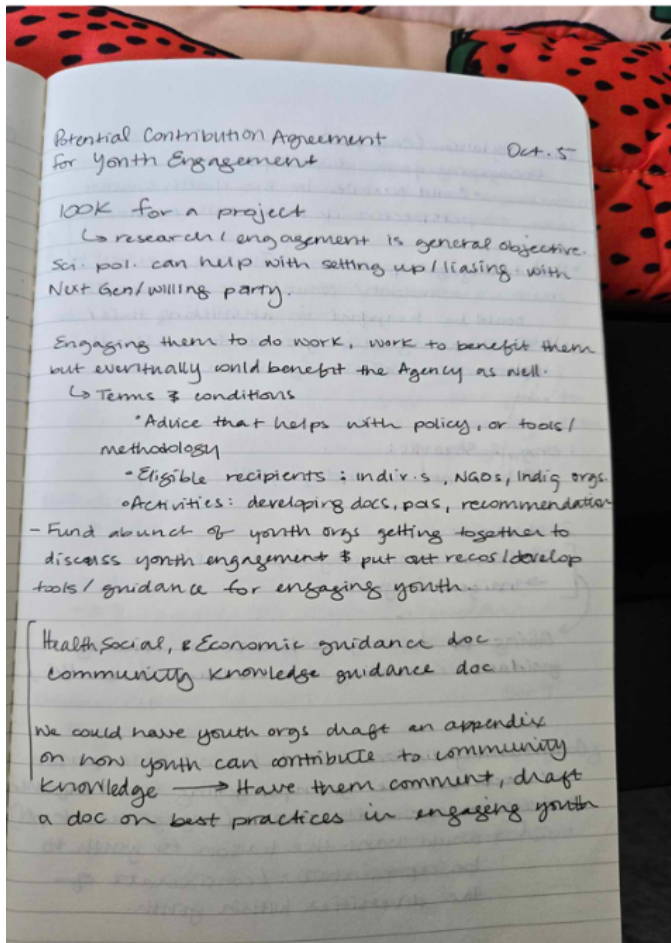 Potential Contribution Agreement
for Youth Engagement
Oct. 5
100K for a project
↳ research / engagement is general objective.
Sci. pol. can help with setting up / liasing with
Next Gen / willing party.
Engaging them to do work, work to benefit them
but eventually could benefit the Agency as well.
↳ Terms & conditions
• Advice that helps with policy, or tools /
methodology
• Eligible recipients : indiv.s, NGOs, Indig orgs.
• Activities: developing docs, pols, recommendation
- Fund abunct of youth orgs getting together to
discuss youth engagement & put out recos / develop
tools / guidance for engaging youth.
Health, Social, & Economic guidance doc
community knowledge guidance doc
We could have youth orgs draft an appendix
on how youth can contribute to community
knowledge → Have them comment, draft
a doc on best practices in engaging youth